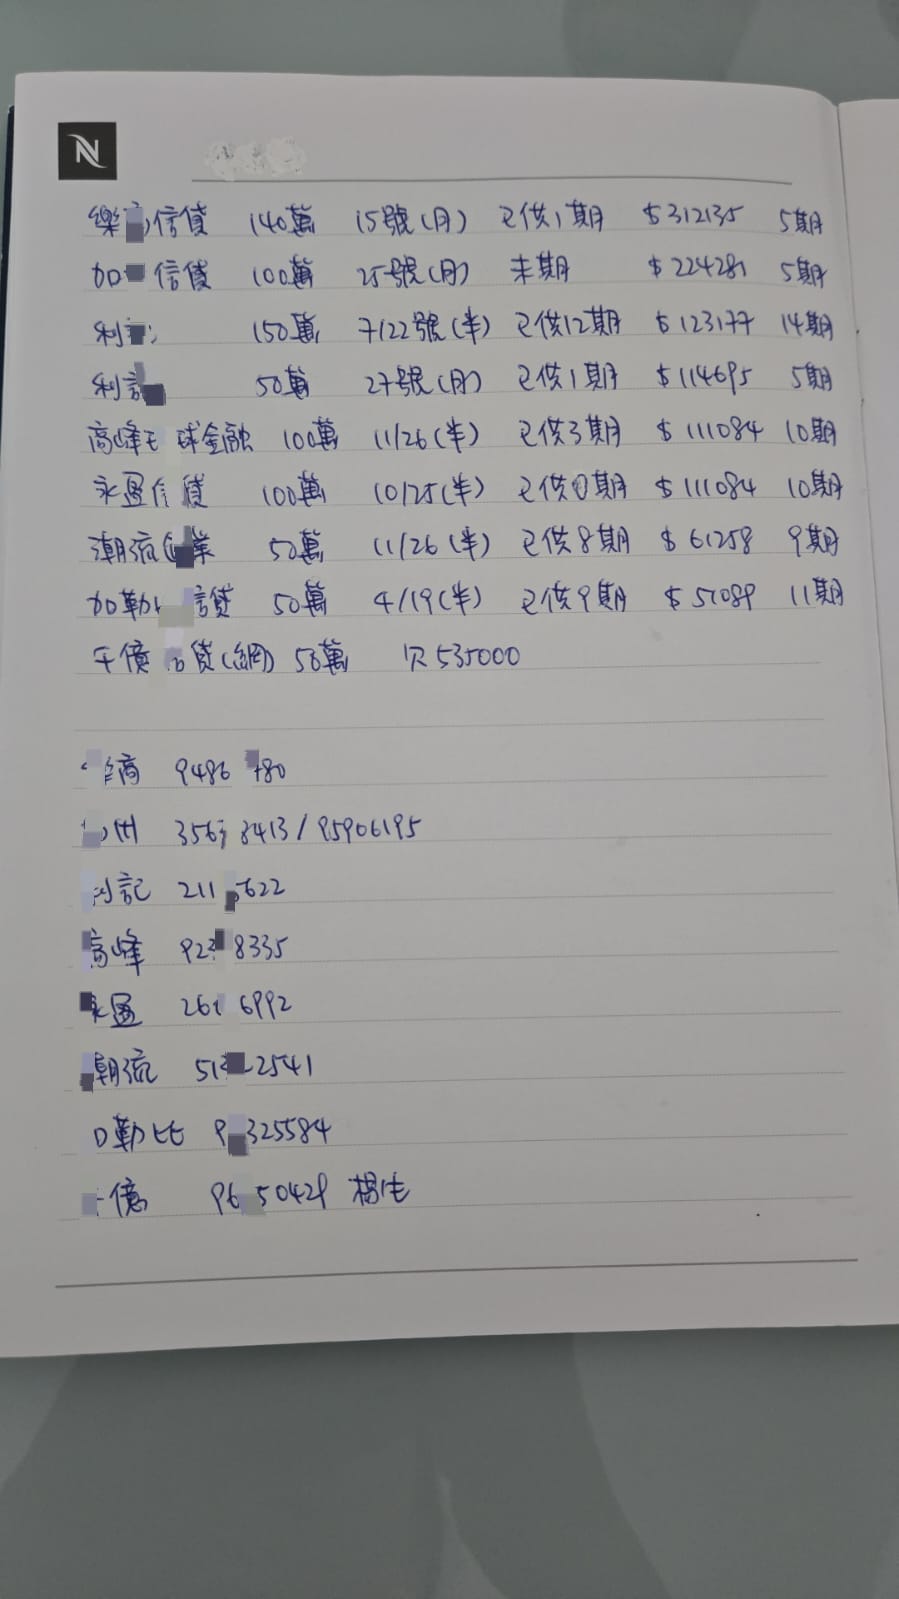 N
樂 信貸 140萬 15號(月) 已供1期 $312135 5期
加 信貸 100萬 25號(月) 未期 $224281 5期
利 150萬 7/22號(半) 已供12期 $123177 14期
利 50萬 27號(月) 已供1期 $114695 5期
高峰 球金融 100萬 11/26(半) 已供3期 $111084 10期
永盈信貸 100萬 10/25(半) 已供 期 $111084 10期
潮流 業 50萬 11/26(半) 已供8期 $61258 9期
加勒 信貸 50萬 4/19(半) 已供9期 $51089 11期
千億 貸(網) 50萬 欠535000
商 9486 80
州 356 8413/95906195
利記 211 5622
高峰 923 8335
永盈 261 6992
潮流 51 2541
勒比 9 325584
億 96 50429 楊生